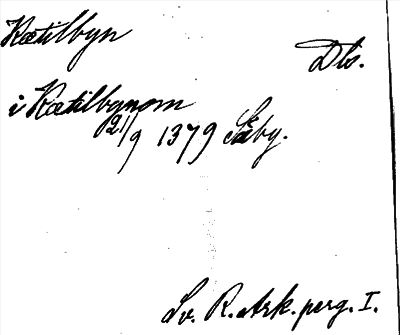 Kætilbyn
Dls.
i Kætilbynom
21/9 1379 Säby.
Sv. R. Ark. perg. I.